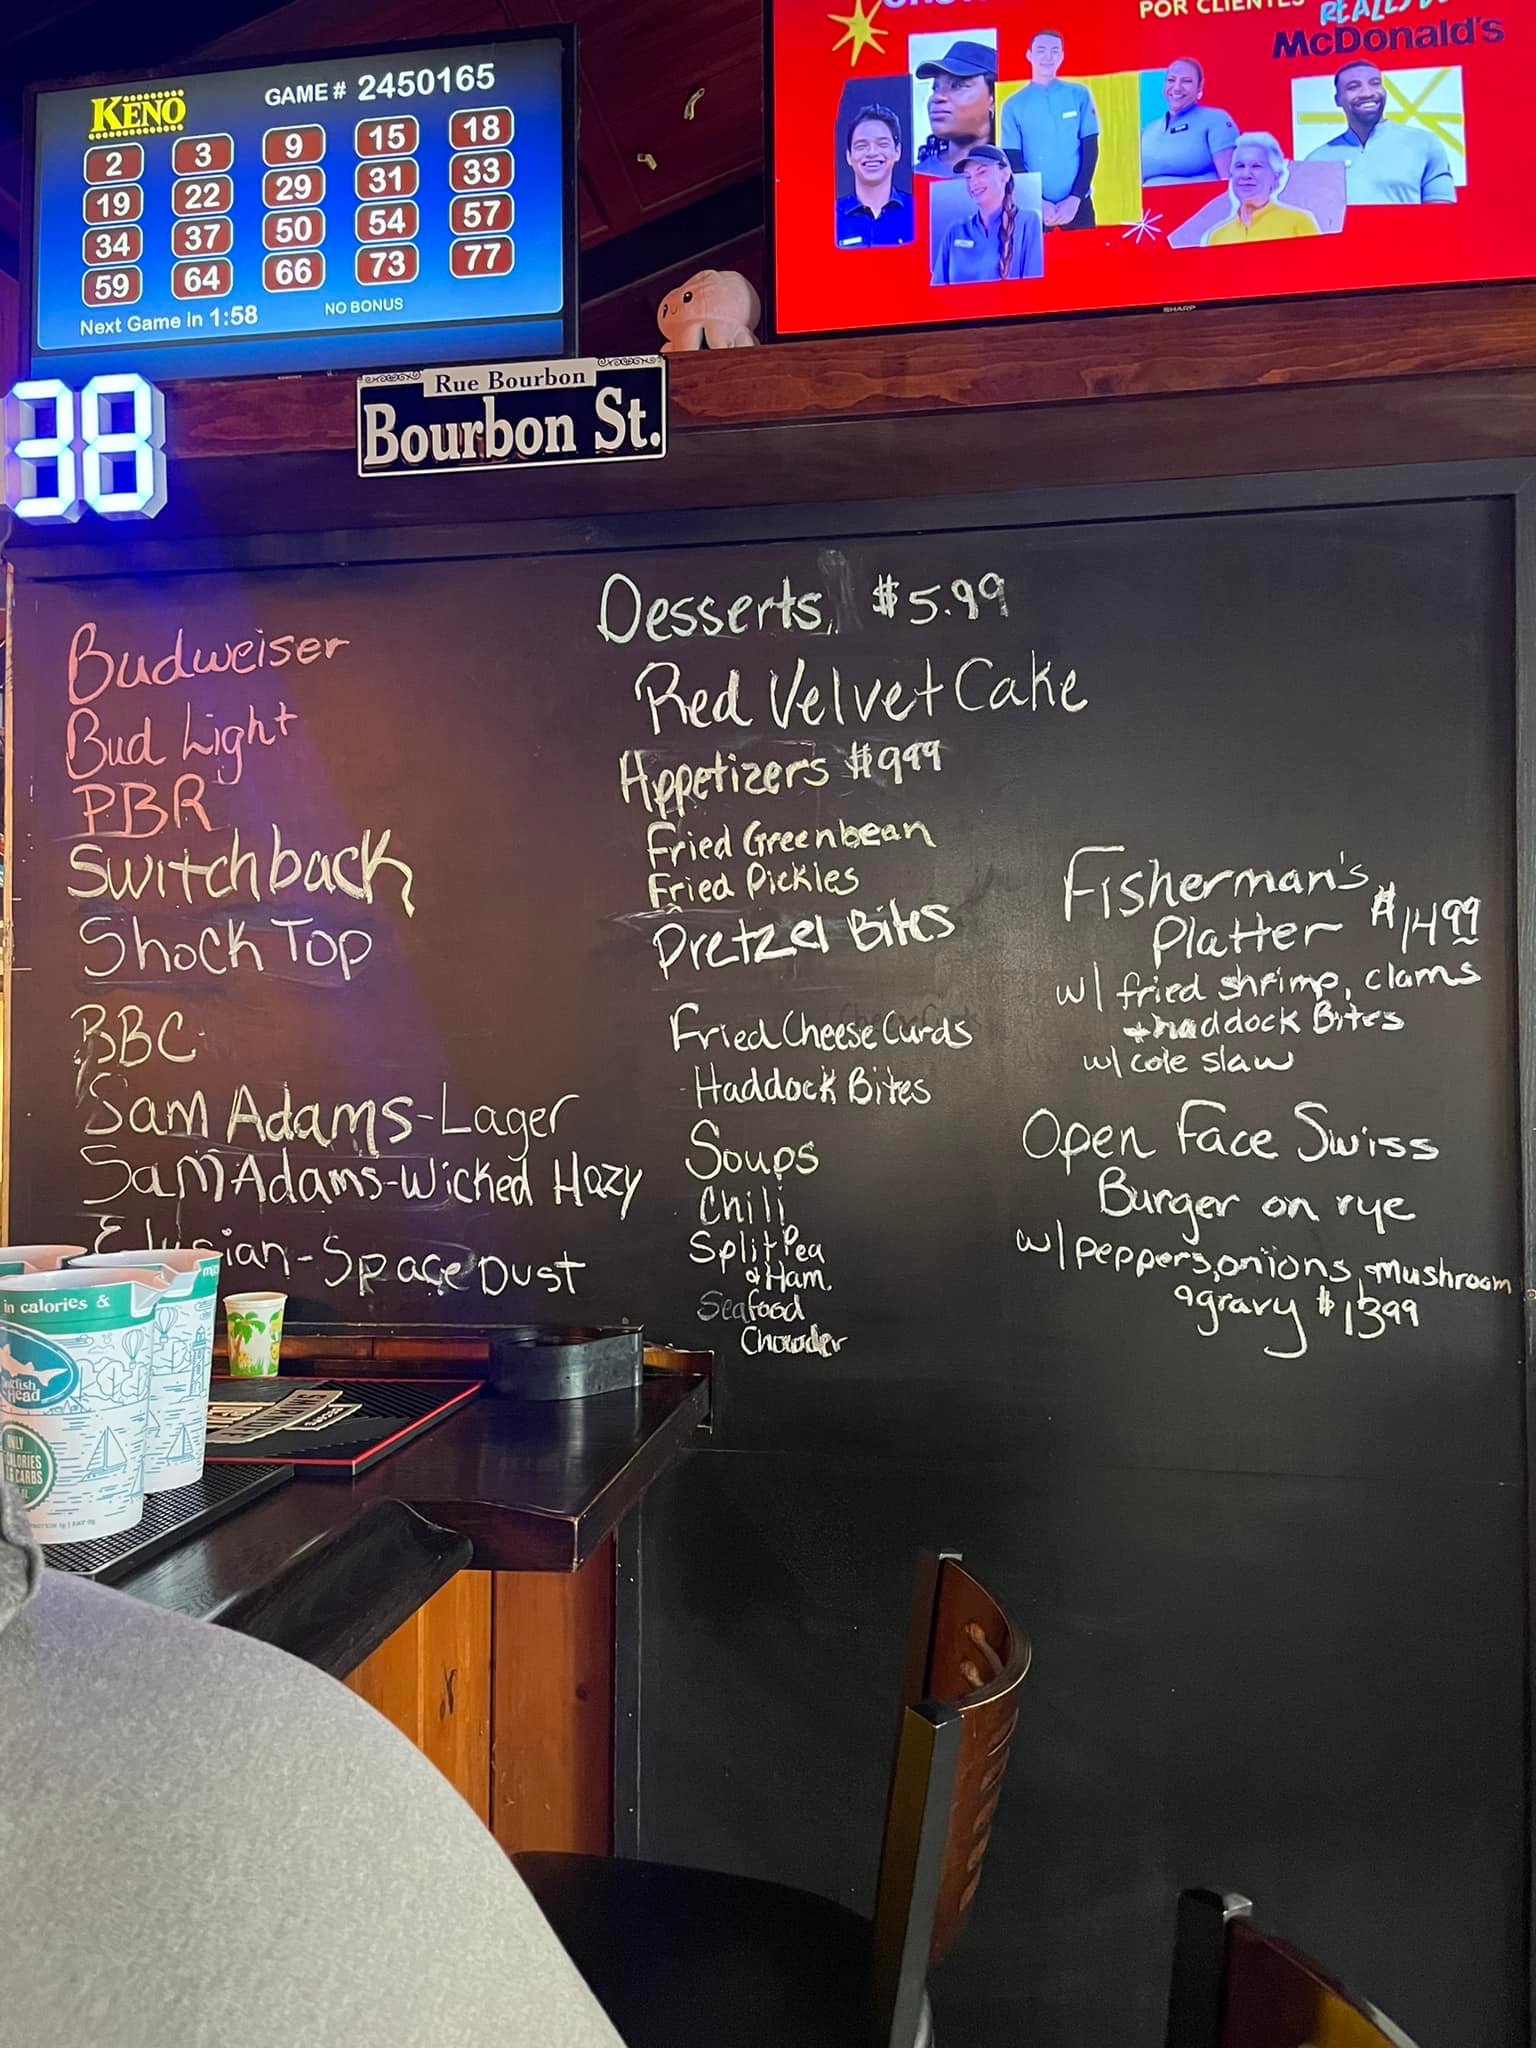 KENO
GAME # 2450165
2 3 9 15 18
19 22 29 31 33
34 37 50 54 57
59 64 66 73 77
Next Game in 1:58
NO BONUS
POR CLIENTES
McDonald's
SHARP
38
Rue Bourbon
Bourbon St.
Budweiser
Bud Light
PBR
Switchback
Shock Top
BBC
Sam Adams-Lager
Sam Adams-Wicked Hazy
Elysian-Space Dust
Desserts $5.99
Red Velvet Cake
Appetizers $9.99
Fried Greenbean
Fried Pickles
Pretzel Bites
Fried Cheese Curds
Haddock Bites
Soups
Chili
Split Pea
& Ham.
Seafood
Chowder
Fisherman's
Platter $14.99
w/ fried shrimp, clams
+ haddock Bites
w/ cole slaw
Open Face Swiss
Burger on rye
w/ peppers, onions, + mushroom
gravy $13.99
in calories &
Head
ONLY
CALORIES
CARBS